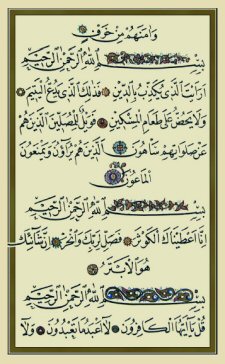 وَآمَنَهُمْ مِنْ خَوْفٍ
بِسْمِ اللَّهِ الرَّحْمَٰنِ الرَّحِيمِ
أَرَأَيْتَ الَّذِي يُكَذِّبُ بِالدِّينِ فَذَٰلِكَ الَّذِي يَدُعُّ الْيَتِيمَ
وَلَا يَحُضُّ عَلَىٰ طَعَامِ الْمِسْكِينِ فَوَيْلٌ لِلْمُصَلِّينَ الَّذِينَ هُمْ
عَنْ صَلَاتِهِمْ سَاهُونَ الَّذِينَ هُمْ يُرَاؤُنَ وَيَمْنَعُونَ
الْمَاعُونَ
بِسْمِ اللَّهِ الرَّحْمَٰنِ الرَّحِيمِ
إِنَّا أَعْطَيْنَاكَ الْكَوْثَرَ فَصَلِّ لِرَبِّكَ وَانْحَرْ إِنَّ شَانِئَكَ
هُوَ الْأَبْتَرُ
بِسْمِ اللَّهِ الرَّحْمَٰنِ الرَّحِيمِ
قُلْ يَا أَيُّهَا الْكَافِرُونَ لَا أَعْبُدُ مَا تَعْبُدُونَ وَلَا